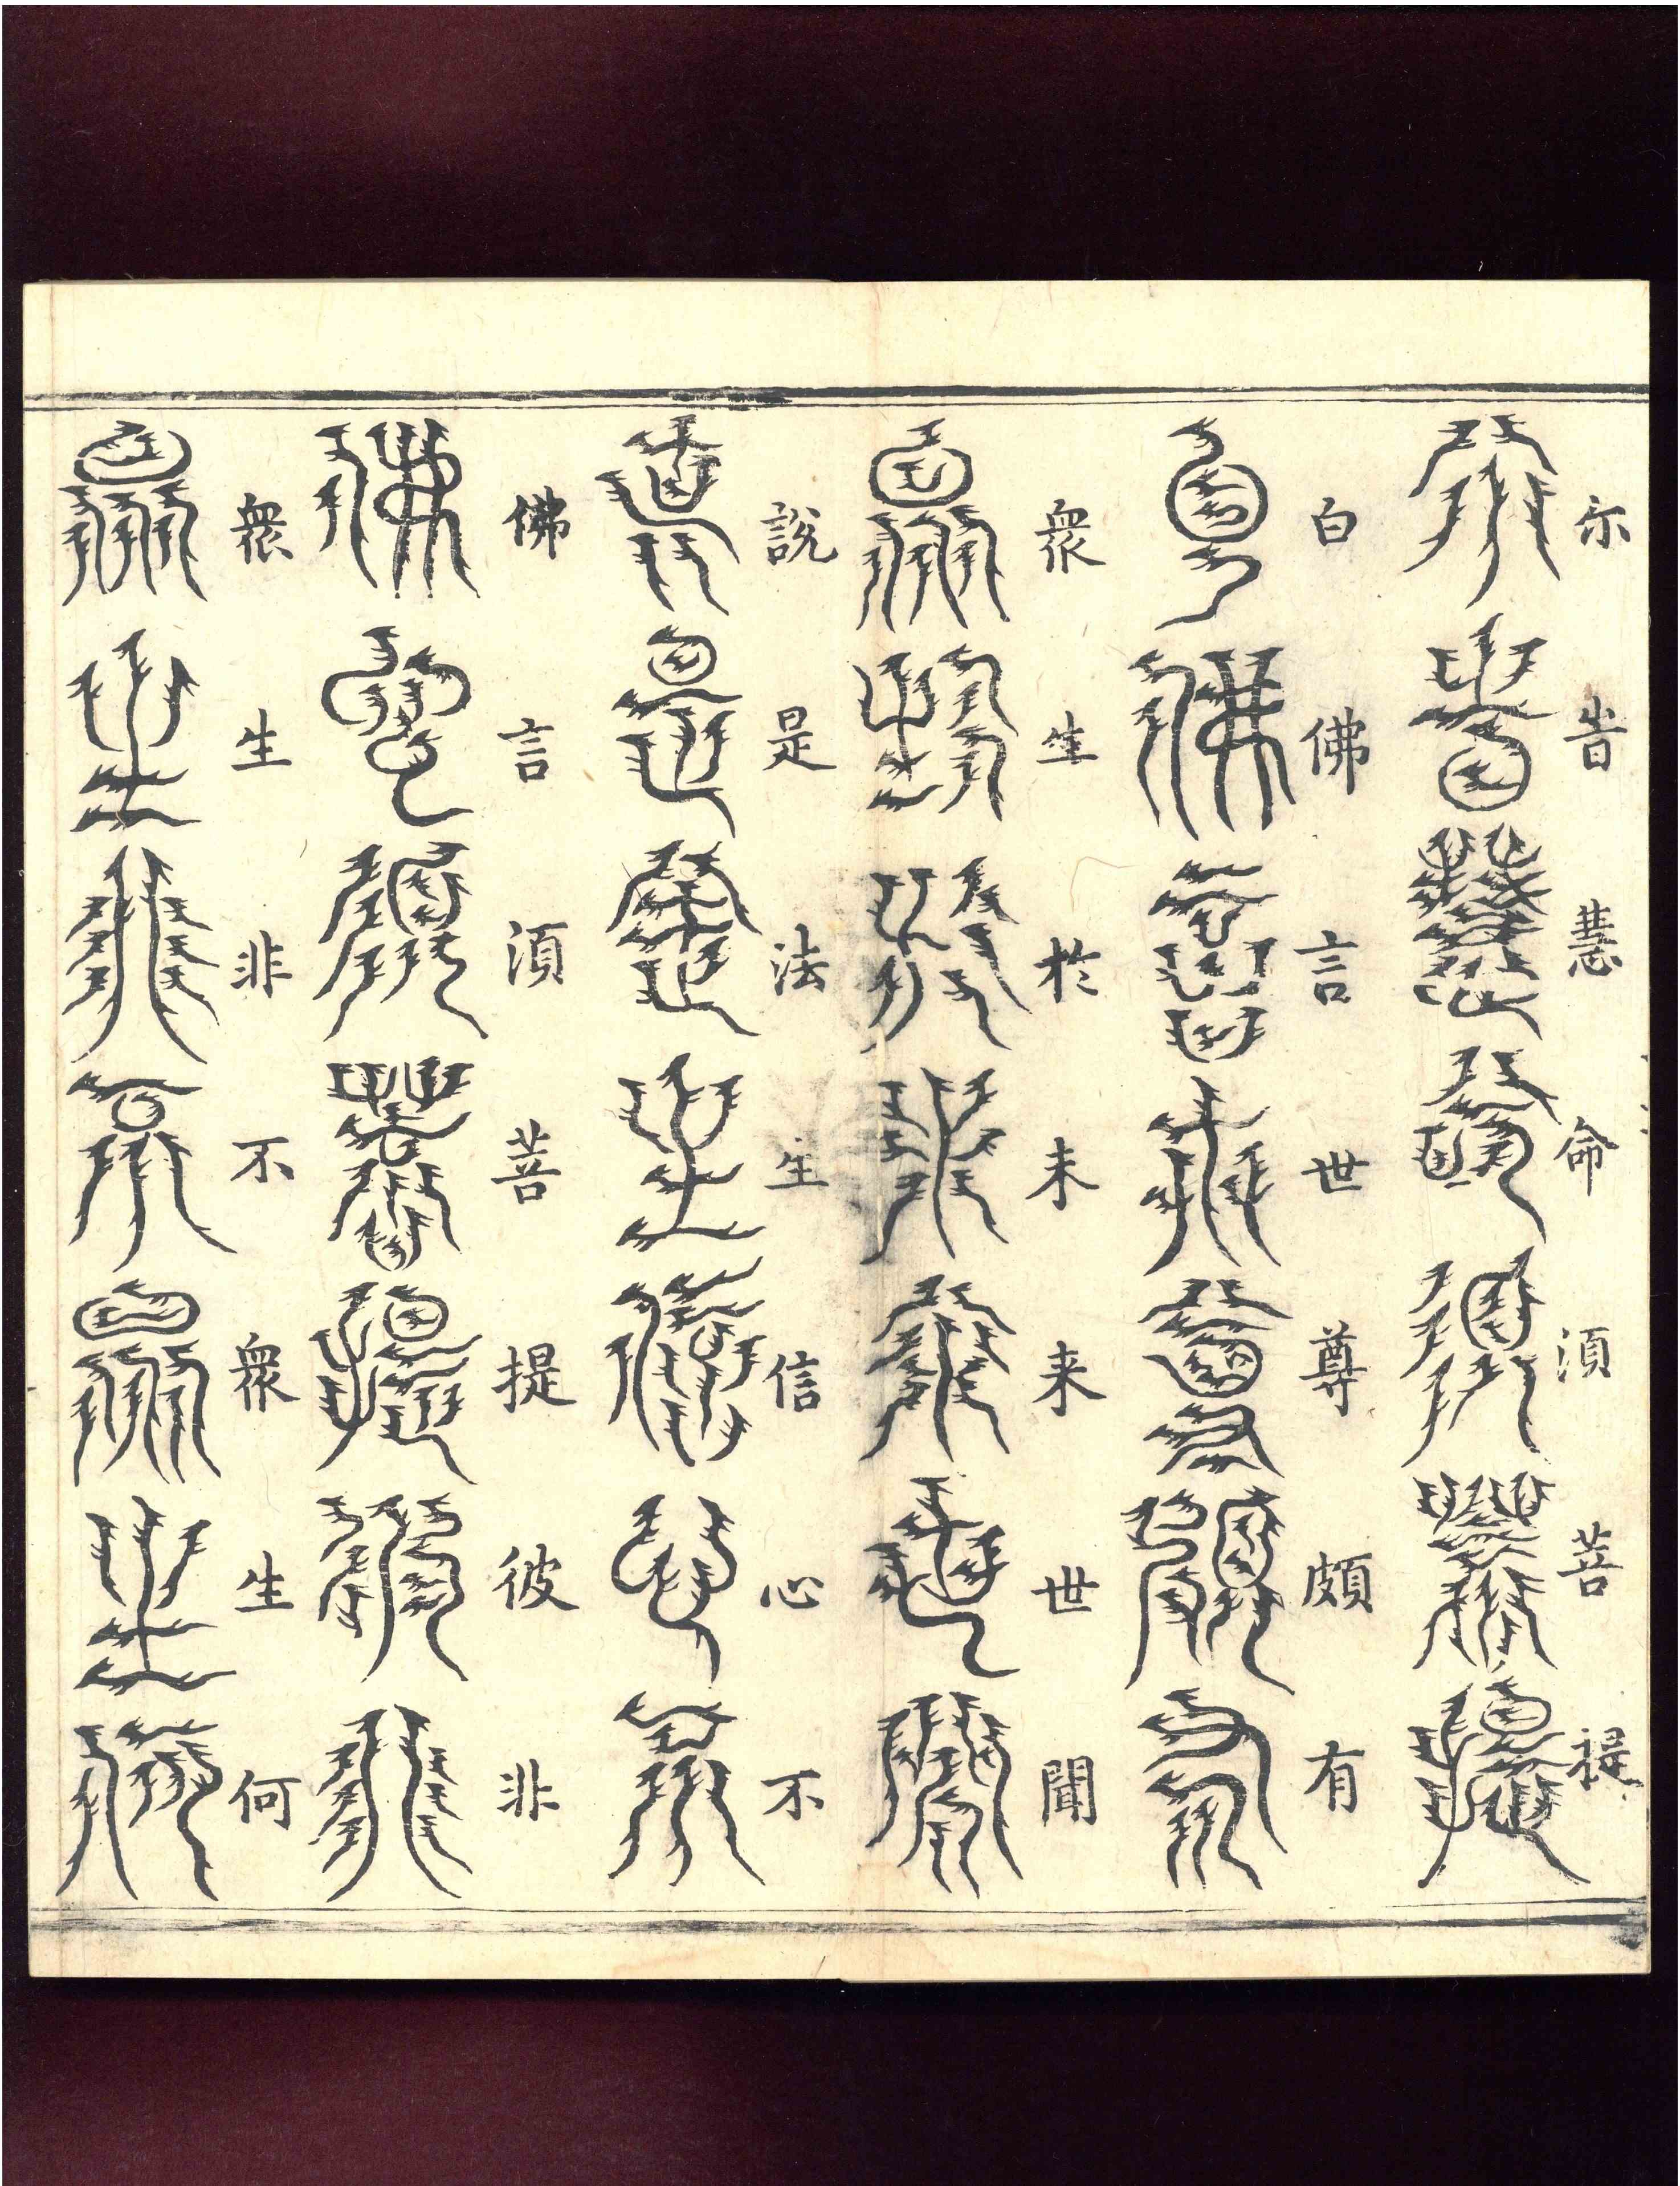 尒旹慧命湏菩提
白佛言世尊頗有
衆生於未来世聞
說是法生信心不
佛言湏菩提彼非
衆生非不衆生何